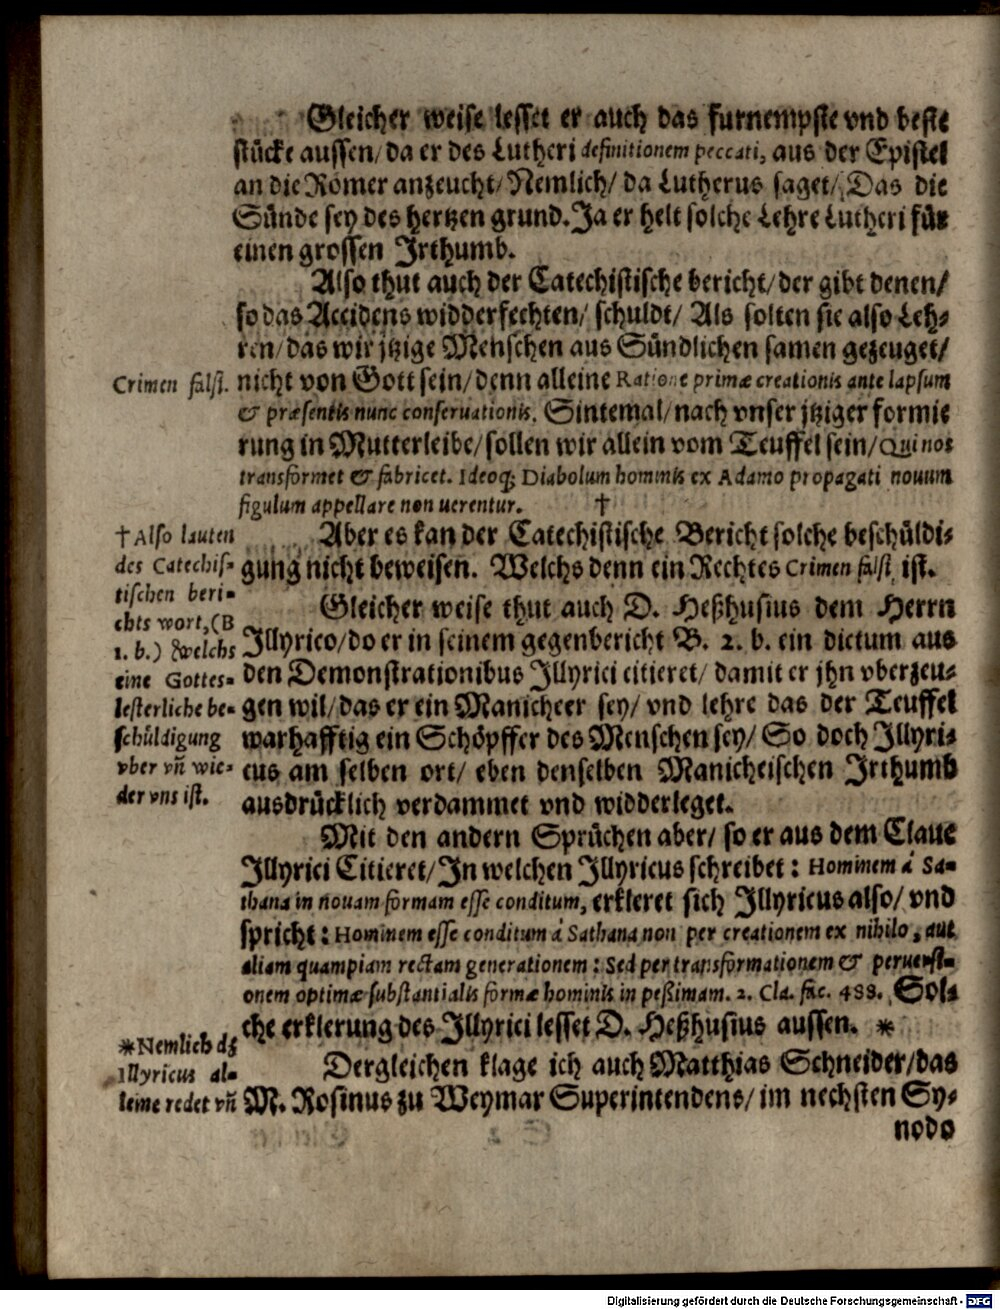 Gleicher weise lesset er auch das furnempste vnd beste
stücke aussen/ da er des Lutheri definitionem peccati, aus der Epistel
an die Römer anzeucht/ Nemlich/ da Lutherus saget/ Das die
Sünde sey des hertzen grund. Ja er helt solche Lehre Lutheri für
einen grossen Irthumb.
Also thut auch der Catechistische bericht/ der gibt denen/
so das Accidens widderfechten/ schuldt/ Als solten sie also Leh-
ren/ das wir jtzige Menschen aus Sündlichen samen gezeuget/
Crimen falsi.
nicht von Gott sein/ denn alleine Ratione primæ creationis ante lapsum
& præsentis nunc conseruationis. Sintemal/ nach vnser jtziger formie
rung in Mutterleibe/ sollen wir allein vom Teuffel sein/ Qui nos
transformet & fabricet. Ideoq; Diabolum hominis ex Adamo propagati nouum
figulum appellare non uerentur. †
Aber es kan der Catechistische Bericht solche beschüldi-
gung nicht beweisen. Welchs denn ein Rechtes Crimen falsi ist.
† Also lauten
des Catechis-
tischen beri-
chts wort, (B
1. b.) welchs
eine Gottes-
lesterliche be-
schüldigung
vber vñ wie-
der vns ist.
Gleicher weise thut auch D. Heßhusius dem Herrn
Illyrico/ do er in seinem gegenbericht B. 2. b. ein dictum aus
den Demonstrationibus Illyrici citieret/ damit er jhn vberzeu-
gen wil/ das er ein Manicheer sey/ vnd lehre das der Teuffel
warhafftig ein Schöpffer des Menschen sey/ So doch Illyri-
cus am selben ort/ eben denselben Manicheischen Irthumb
ausdrücklich verdammet vnd widderleget.
Mit den andern Sprüchen aber/ so er aus dem Claue
Illyrici Citieret/ In welchen Illyricus schreibet: Hominem á Sa-
thana in nouam formam esse conditum, erkleret sich Illyricus also/ vnd
spricht: Hominem esse conditum á Sathana non per creationem ex nihilo, aut
aliam quampiam rectam generationem: Sed per transformationem & peruersi-
onem optimæ substantialis formæ hominis in peßimam. 2. Cla. fac. 488. Sol-
che erklerung des Illyrici lesset D. Heßhusius aussen. *
*Nemlich dz
Illyricus al-
leine redet vñ
Dergleichen klage ich auch Matthias Schneider/ das
M. Rosinus zu Weymar Superintendens/ im nechsten Sy-
nodo
Digitalisierung gefördert durch die Deutsche Forschungsgemeinschaft - DFG